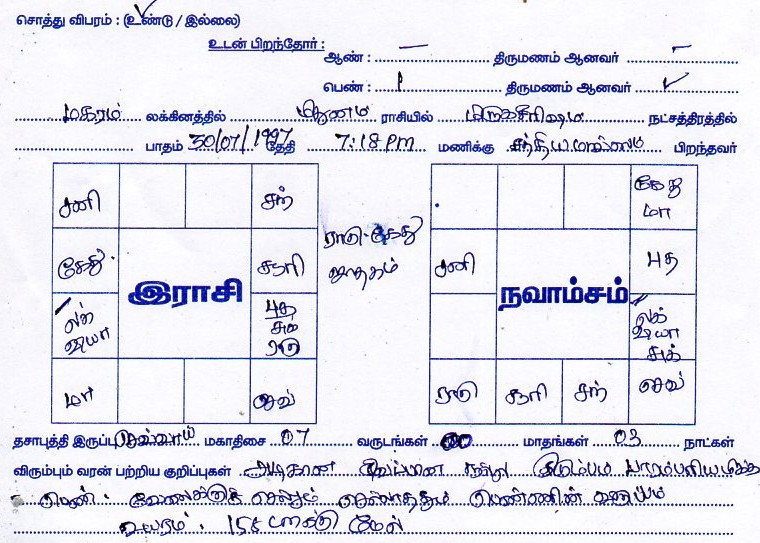 சொத்து விபரம் : (உண்டு / இல்லை)
உடன் பிறந்தோர் :
ஆண் : — திருமணம் ஆனவர் –
பெண் : 1 திருமணம் ஆனவர் ✓
மகரம் லக்கினத்தில் மிதுனம் ராசியில் மிருகசீரிஷம் நட்சத்திரத்தில்
பாதம் 30/07/1997 தேதி 7:18 PM மணிக்கு பிறந்தவர்
சனி சந்
கேது சூரி
லக் புத
சுக்
ராகு
மா செவ்
இராசி
ராகு-கேது
ஜாதகம்
கேது
மா
சனி புத
லக்
சுக்
ராகு சூரி சந் செவ்
நவாம்சம்
தசாபுத்தி இருப்பு செவ்வாய் மகாதிசை 07 வருடங்கள் 00 மாதங்கள் 03 நாட்கள்
விரும்பும் வரன் பற்றிய குறிப்புகள் அழகான நல்ல குடும்பம் பாரம்பரியமிக்க
பெண். வேலைக்கு செல்லும் பெண்ணின் விருப்பம்
உயரம். 158 மேல்